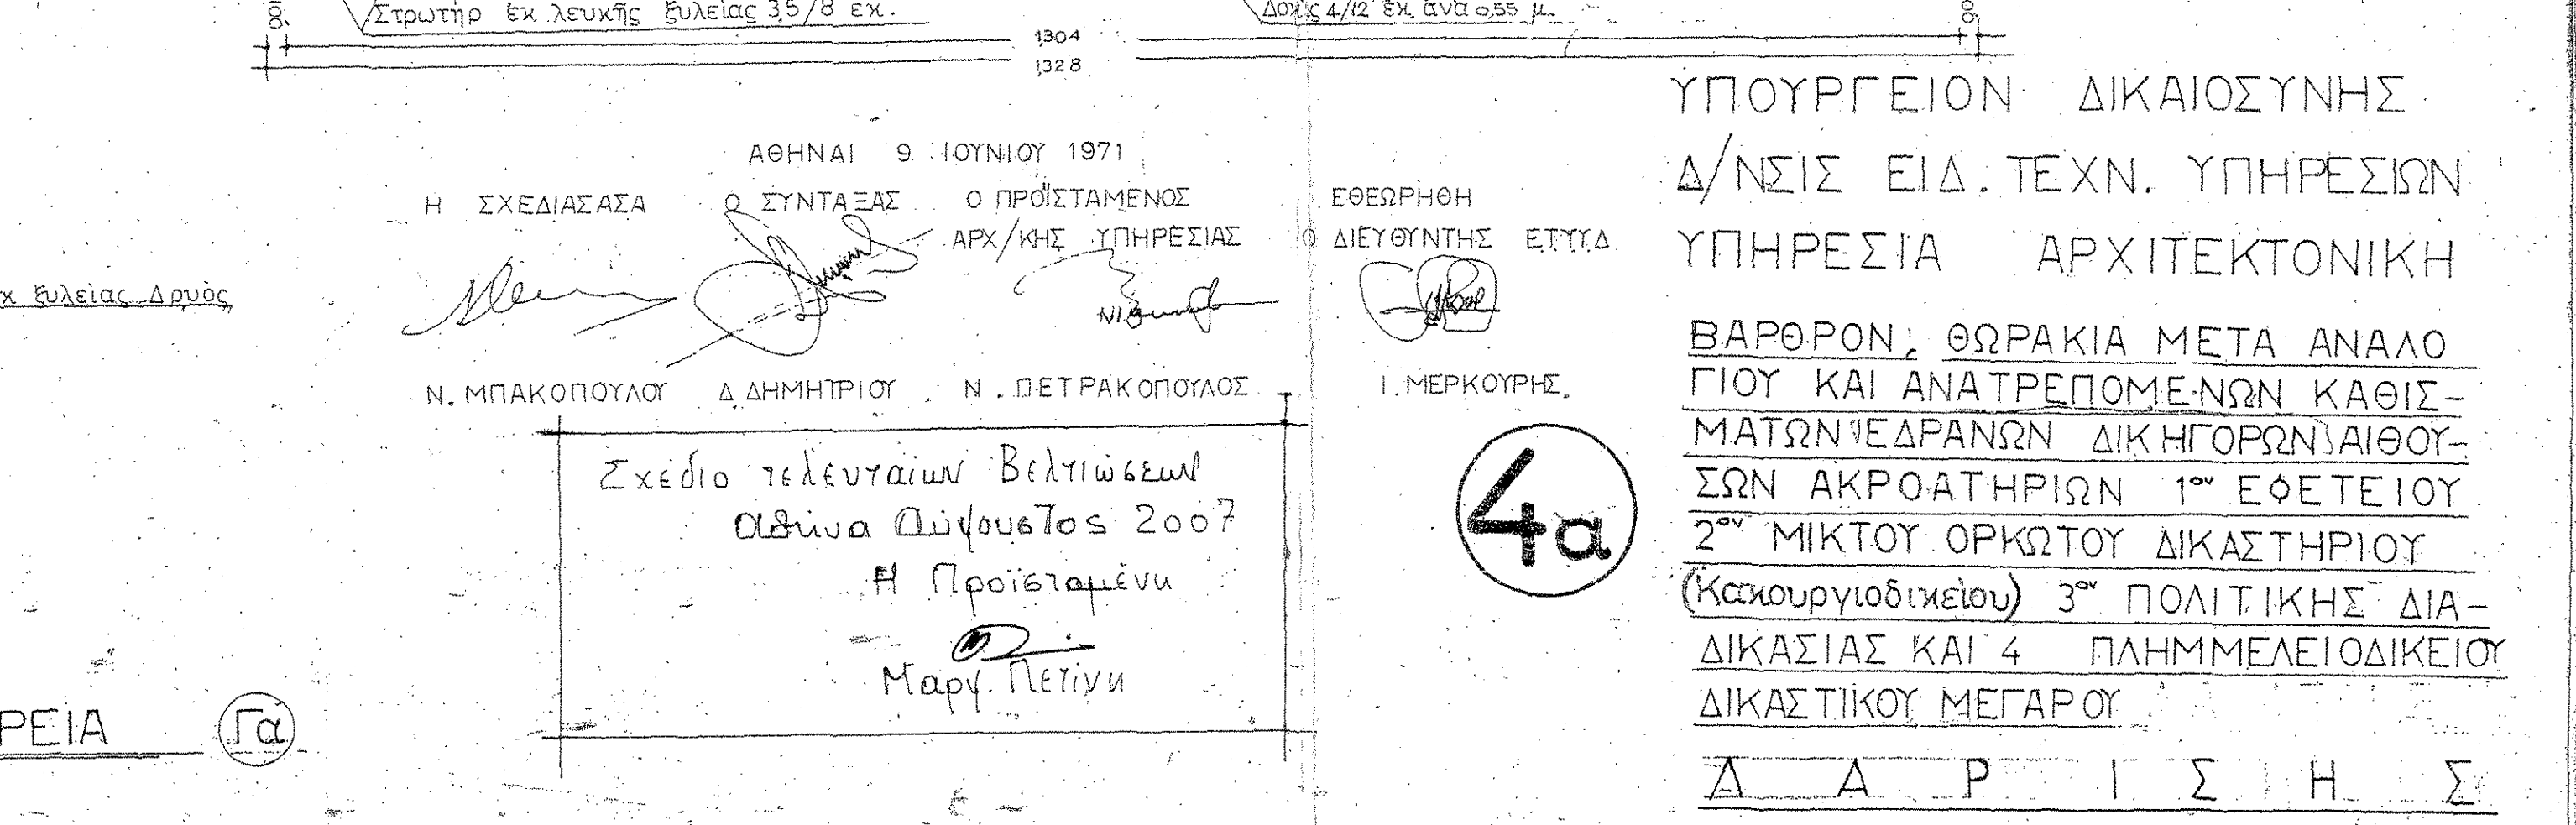 Στρωτήρ ἐκ λευκῆς ξυλείας 3,5/8 εκ.
Δοκίς 4/12 ἐκ. ἀνά 0,55 μ.
1304
1328
ΑΘΗΝΑΙ 9 ΙΟΥΝΙΟΥ 1971
Η ΣΧΕΔΙΑΣΑΣΑ
Ο ΣΥΝΤΑΞΑΣ
Ο ΠΡΟΪΣΤΑΜΕΝΟΣ
ΑΡΧ/ΚΗΣ ΥΠΗΡΕΣΙΑΣ
ΕΘΕΩΡΗΘΗ
Ο ΔΙΕΥΘΥΝΤΗΣ ΕΤΥΥΔ
κ ξυλείας Δρυὸς
Ν. ΜΠΑΚΟΠΟΥΛΟΥ
Δ ΔΗΜΗΤΡΙΟΥ
Ν. ΠΕΤΡΑΚΟΠΟΥΛΟΣ
Ι. ΜΕΡΚΟΥΡΗΣ.
Σχέδιο τελευταίων Βελτιώσεων
Αθήνα Αύγουστος 2007
Η Προϊσταμένη
Μαργ. Πετίνη
4α
ΡΕΙΑ
Γα
ΥΠΟΥΡΓΕΙΟΝ ΔΙΚΑΙΟΣΥΝΗΣ
Δ/ΝΣΙΣ ΕΙΔ. ΤΕΧΝ. ΥΠΗΡΕΣΙΩΝ
ΥΠΗΡΕΣΙΑ ΑΡΧΙΤΕΚΤΟΝΙΚΗ
ΒΑΡΘΡΟΝ, ΘΩΡΑΚΙΑ ΜΕΤΑ ΑΝΑΛΟ
ΓΙΟΥ ΚΑΙ ΑΝΑΤΡΕΠΟΜΕΝΩΝ ΚΑΘΙΣ-
ΜΑΤΩΝ ΕΔΡΑΝΩΝ ΔΙΚΗΓΟΡΩΝ ΑΙΘΟΥ-
ΣΩΝ ΑΚΡΟΑΤΗΡΙΩΝ 1ον ΕΦΕΤΕΙΟΥ
2ον ΜΙΚΤΟΥ ΟΡΚΩΤΟΥ ΔΙΚΑΣΤΗΡΙΟΥ
(Κακουργιοδικείου) 3ον ΠΟΛΙΤΙΚΗΣ ΔΙΑ-
ΔΙΚΑΣΙΑΣ ΚΑΙ 4 ΠΛΗΜΜΕΛΕΙΟΔΙΚΕΙΟΥ
ΔΙΚΑΣΤΙΚΟΥ ΜΕΓΑΡΟΥ
Λ Α Ρ Ι Σ Η Σ